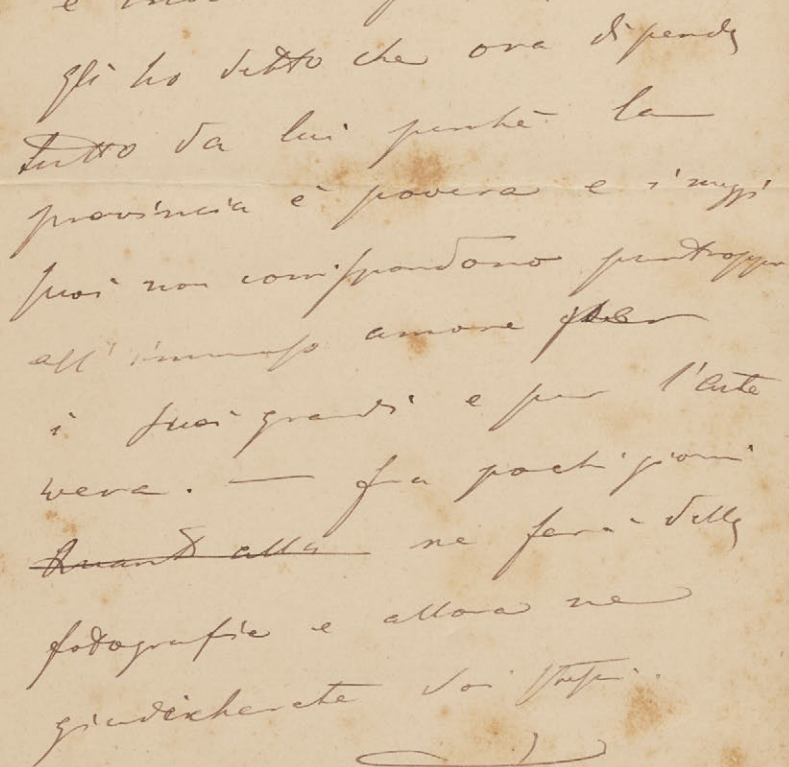 gli ho detto che ora dipende
tutto da lui perchè la
provincia è povera e i mezzi
suoi non corrispondono purtroppo
all'immenso amore per
i suoi grandi e per l'arte
vera. — fra pochi giorni
Quanto alla ne farà delle
fotografie e allora ne
giudicherete voi stessi.